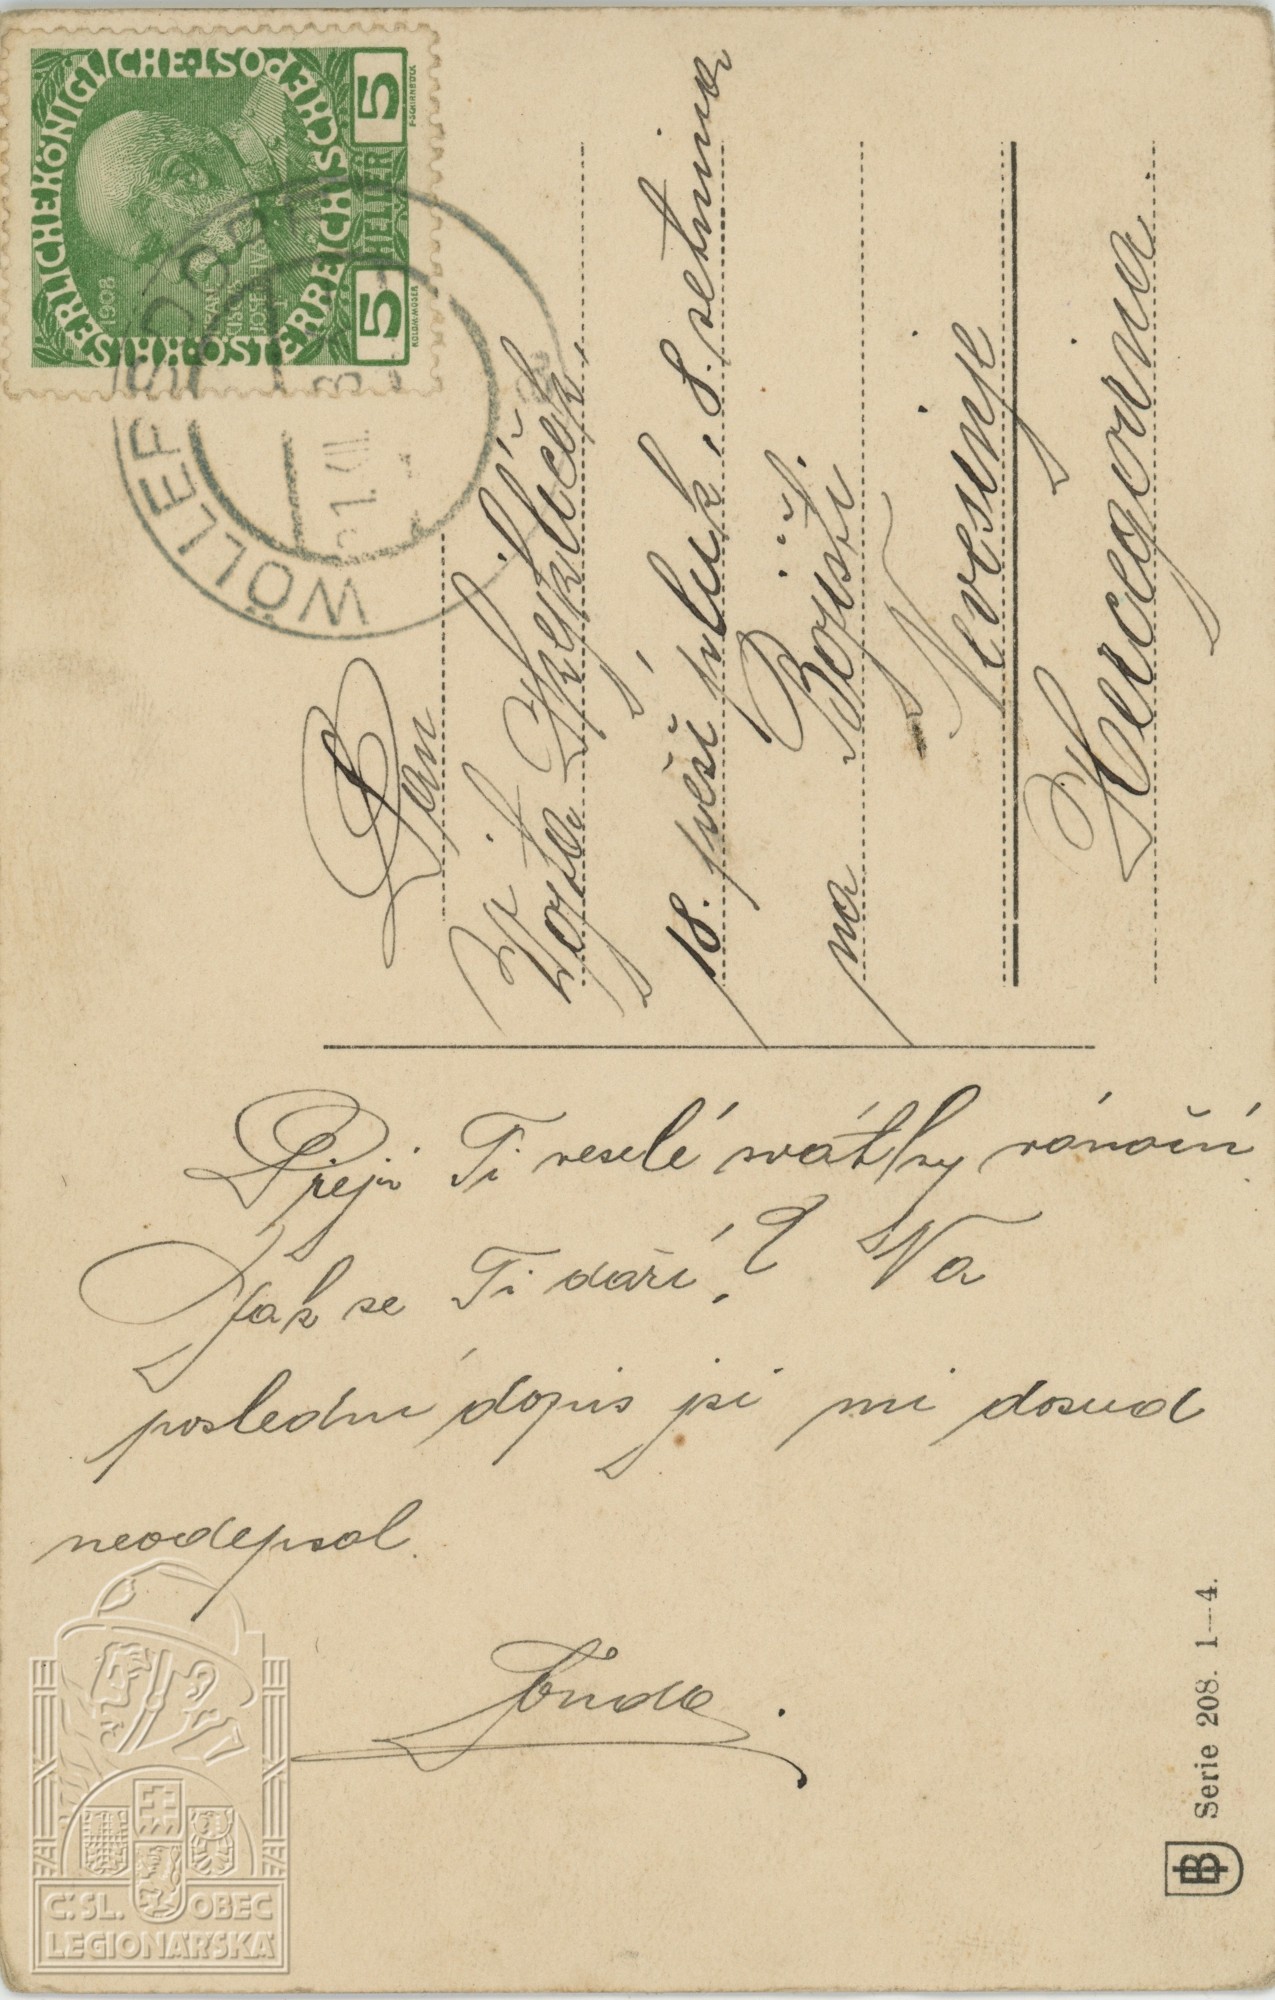 KAISERLICHEKÖNIGLICHE·POST
ÖSTERREICHISCHE
1908
5 HELLER 5
KOLOM.MOSER
F.SCHIRNBÖCK
WÖLLERSDORF
21.XII.
Pan
Vojta
18. pěší pluk, 8. setnina
na Bojišti
Nevesinje
Hercegovina.
Přeji Ti veselé svátky vánoční
Jak se Ti daří? Na
poslední dopis jsi mi dosud
neodepsal.
Tonda.
Serie 208. 1—4.
B
Č.SL. OBEC
LEGIONÁŘSKÁ